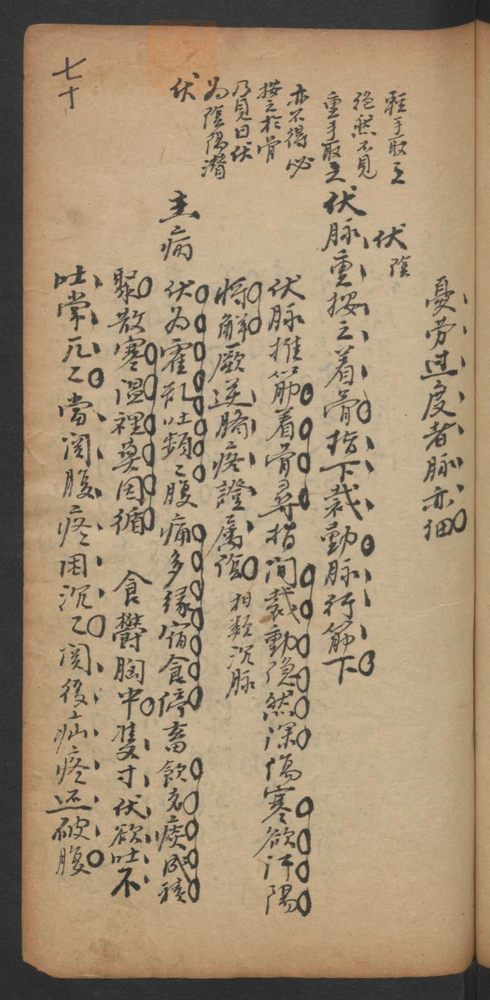 憂勞过度者脉亦细
伏 陰
輕手取之
絕然不見
重手取之
亦不得必
按之於骨
乃見曰伏
为陰陽潛
伏
伏脉重按之着骨指下裁動脉行筋下
伏脉推筋着骨尋指间裁動隐然深傷寒欲汗陽
将解厥逆臍疼證属阴 相類沉脉
主病
伏为霍乱吐頻々腹痛多缘宿食停畜飲老痰成積
聚散寒温裡莫因循 食欝胸中雙寸伏欲吐不
吐常兀々當関腹疼困沉々関後疝疼还破腹
七十